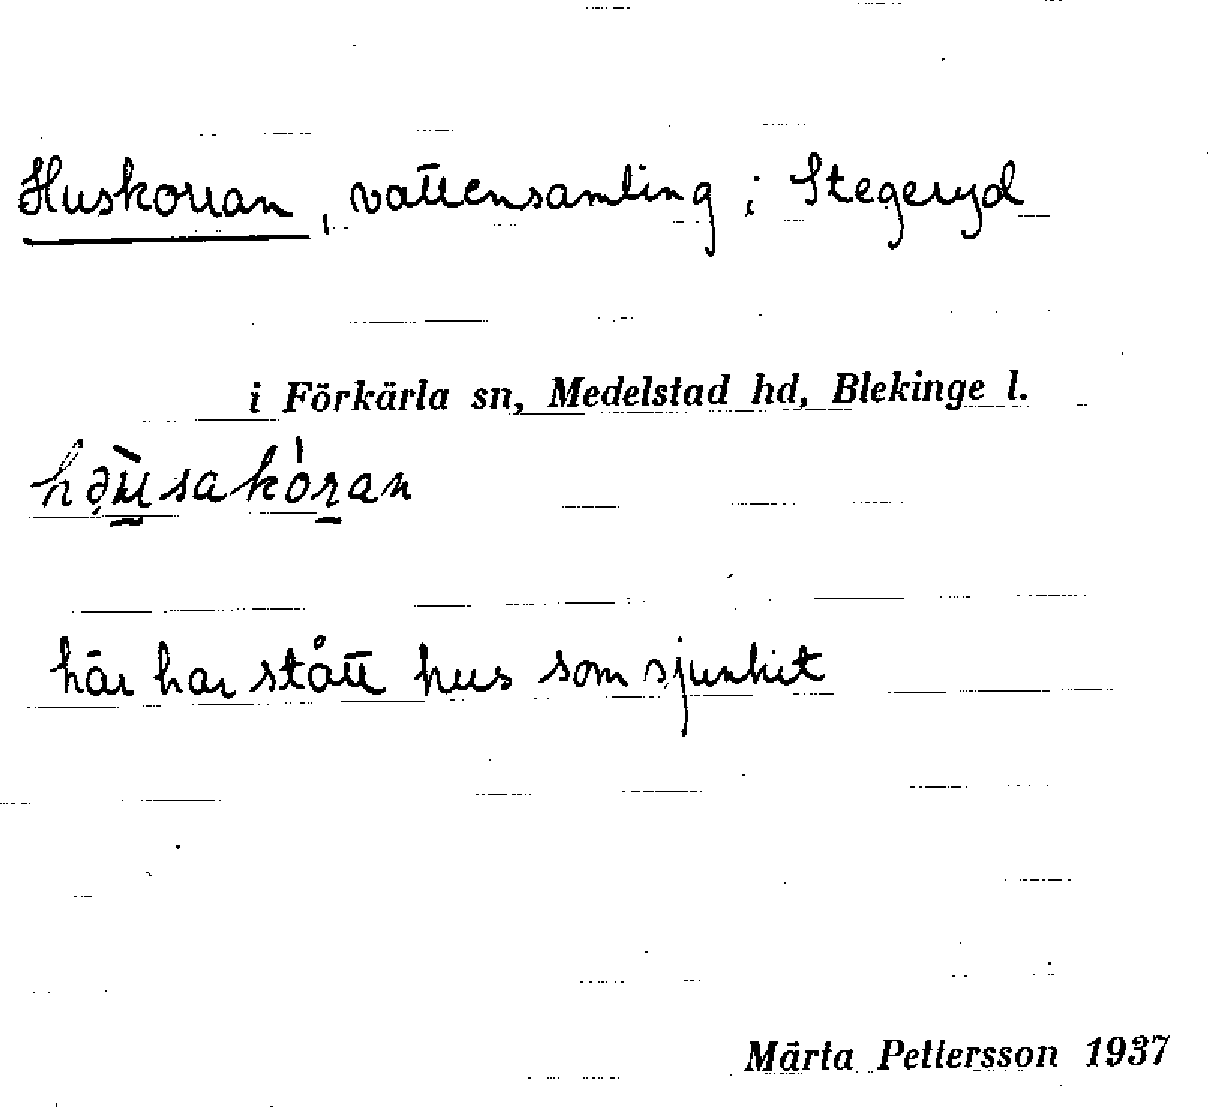 Huskorran, vattensamling i Stegeryd
i Förkärla sn, Medelstad hd, Blekinge l.
här har stått hus som sjunkit
Märta Pettersson 1937